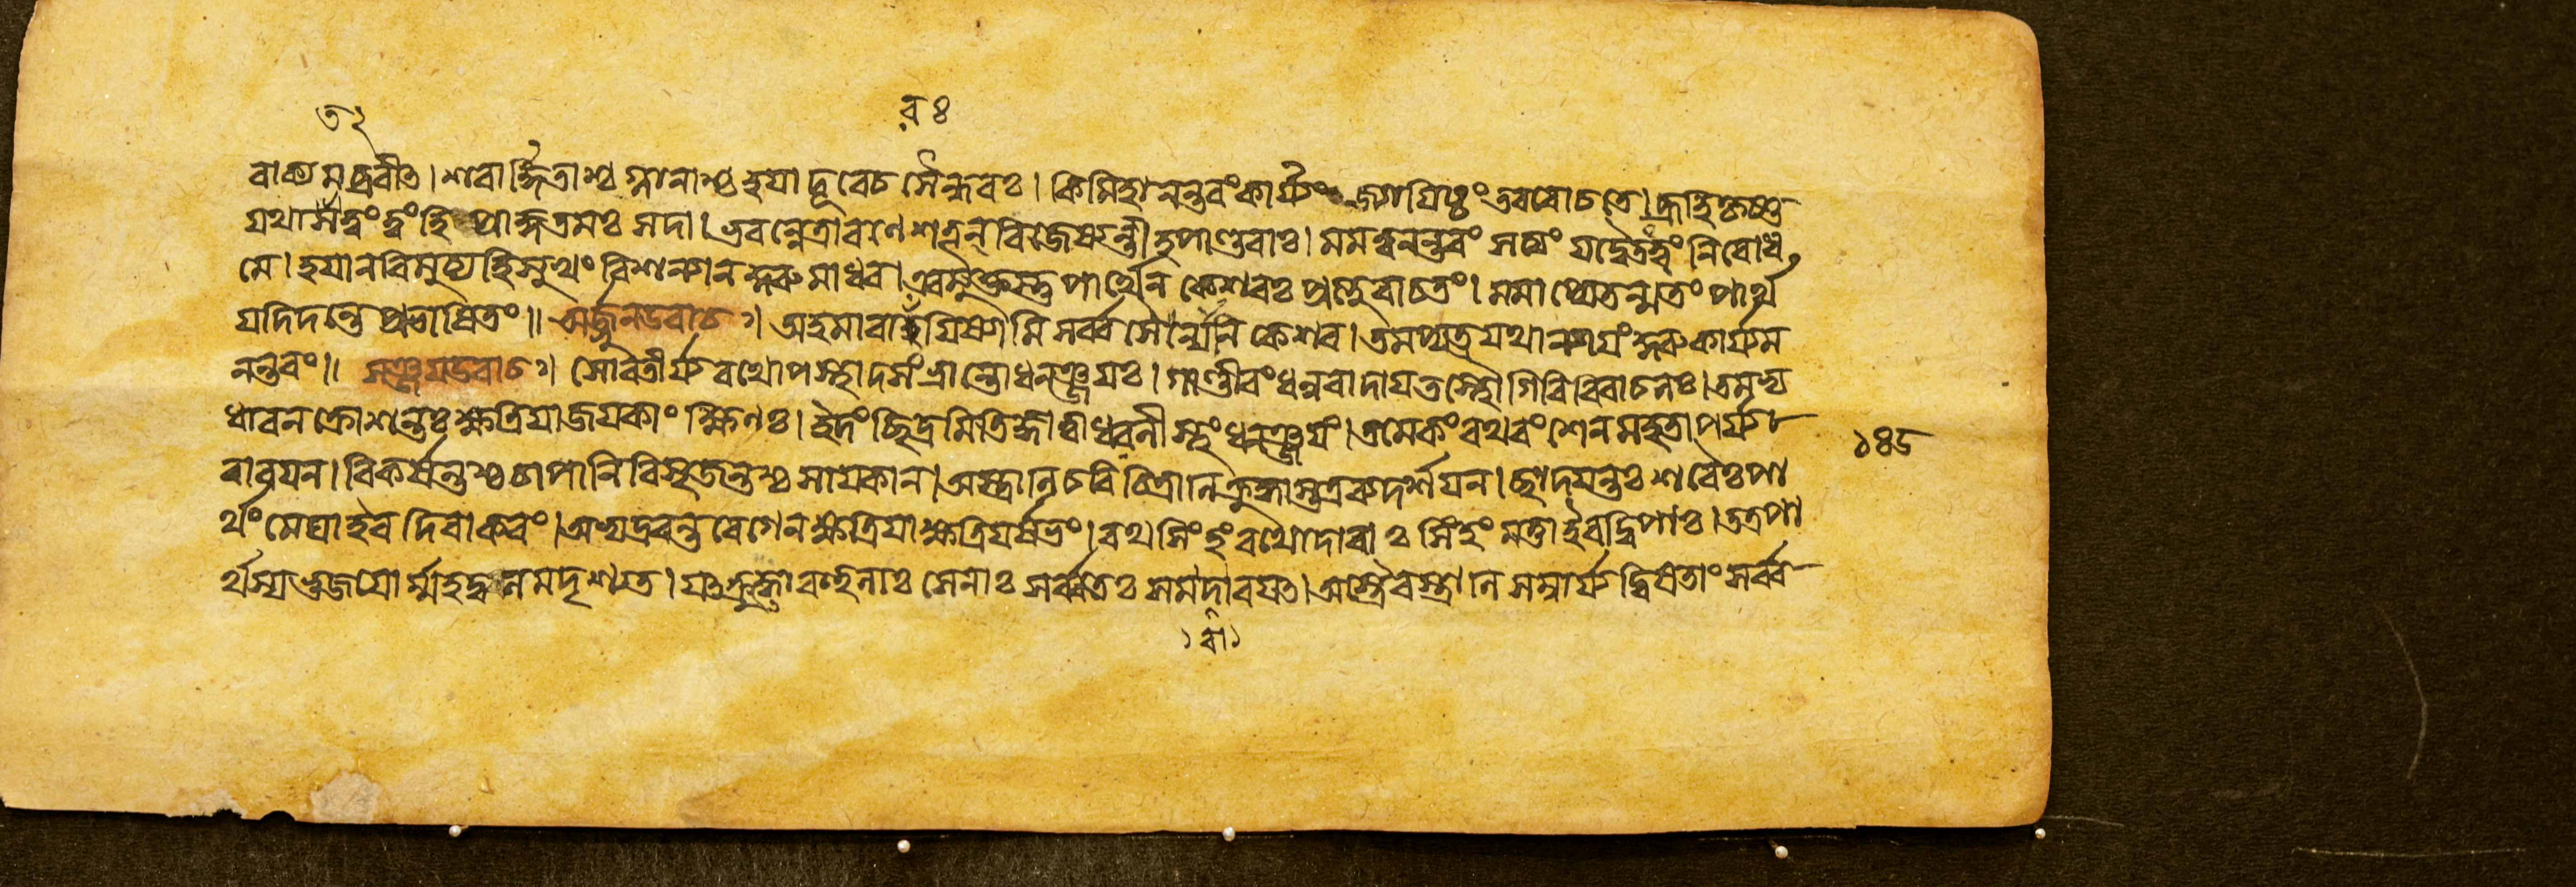 রঃ
বাক্যমব্রবীৎ। শরার্দ্দিতাশ্চ গ্লানাশ্চ হয়া দূরে চ সৈন্ধবঃ। কিমিহানন্তরং কার্য্যং জ্যায়িষ্ঠং তব রোচতে। ব্রূহি কৃষ্ণ
যথাসত্ত্বং ত্বং হি প্রাজ্ঞতমঃ সদা। ভবন্নেত্রা রণে শত্রূন্ বিজেষ্যন্তীহ পাণ্ডবাঃ। মম ত্বনন্তরং নিবোধ
মে। হয়ান বিমুচ্য হি সুখং বিশল্যান কুরু মাধব। এবমুক্তস্তু পার্থেন কেশবঃ প্রত্যুবাচ তং। মমাপ্যেতন্মতং পার্থ
যদিদন্তে প্রভাষিতং॥ অর্জ্জুন উবাচ। অহমাবারয়িষ্যামি সর্ব্বসৈন্যানি কেশব। ত্বমপ্যত্র যথান্যায়ং কুরু কার্য্যম
নন্তরং॥ সঞ্জয় উবাচ। সোবতীর্য্য রথোপস্থাদসংভ্রান্তো ধনঞ্জয়ঃ। গাণ্ডীবং ধনুরাদায় তস্থৌ গিরিরিবাচলঃ। তমভ্য
ধাবন ক্রোশন্তঃ ক্ষত্রিয়া জয়কাংক্ষিণঃ। ইদং ছিদ্রমিতি জ্ঞাত্বা ধরণীস্থং ধনঞ্জয়ং। তমেকং রথবংশেন মহতা পর্য্য
বারয়ন। বিকর্ষন্তশ্চ চাপানি বিসৃজন্তশ্চ সায়কান। অস্ত্রাণি চ বিচিত্রাণি ক্রুদ্ধাস্তত্র ব্যদর্শয়ন। ছাদয়ন্তঃ শরৈঃ পা
র্থং মেঘা ইব দিবাকরং। অভ্যদ্রবন্ত বেগেন ক্ষত্রিয়া ক্ষত্রিয়র্ষভং। রথসিংহং রথোদারাঃ সিংহং মত্তা ইব দ্বিপাঃ। তত্র পা
র্থস্য ভুজয়োর্ম্মহদ্বলমদৃশ্যত। যৎ ক্রুদ্ধো বহুলাঃ সেনাঃ সর্ব্বতঃ সমবারয়ৎ। অস্ত্রৈরস্ত্রাণি সম্বার্য্য দ্বিষতাং সর্ব্ব
১৪৫